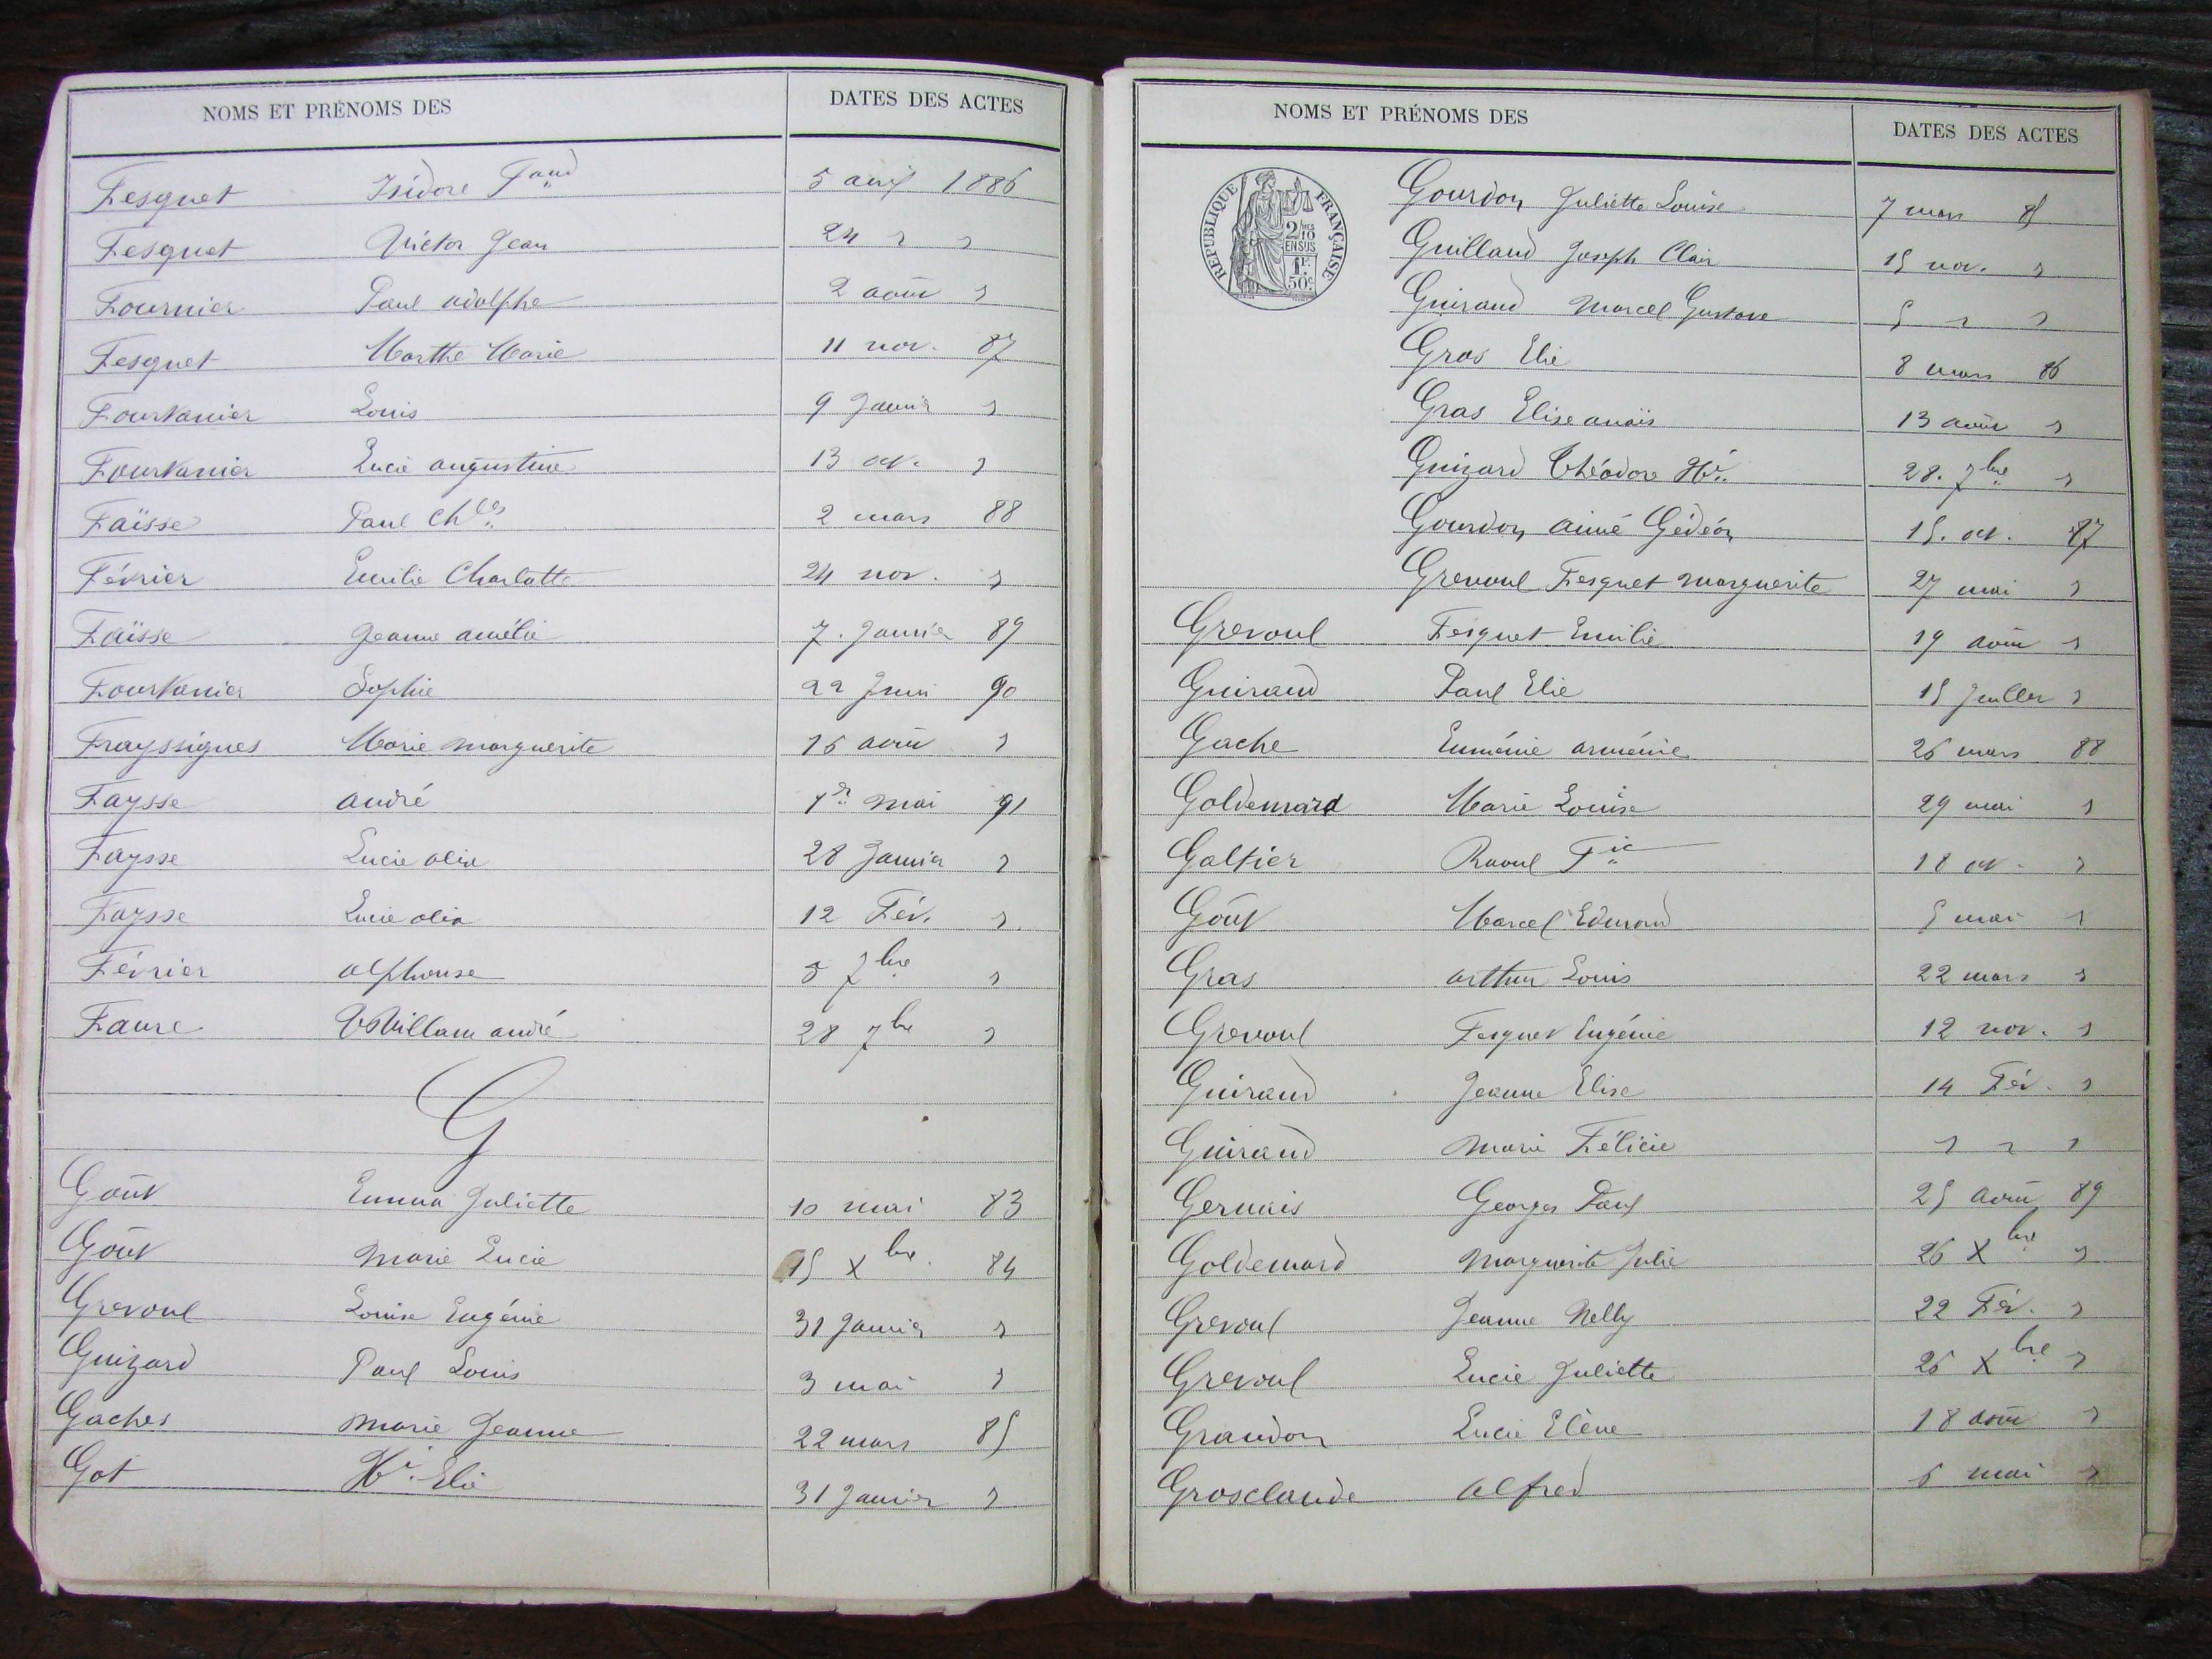 NOMS ET PRÉNOMS DES DATES DES ACTES
Fesquet Isidore Fand 5 avril 1886
Fesquet Victor Jean 24 " "
Fournier Paul Adolphe 2 août "
Fesquet Marthe Marie 11 nov. 87
Fourtanier Louis 9 Janvier "
Fourtanier Lucie Augustine 13 oct. "
Faïsse Paul Chles 2 mars 88
Février Emilie Charlotte 24 nov. "
Faïsse Jeanne Amélie 7. Janvier 89
Fourtanier Sophie 22 Juin 90
Frayssignes Marie Marguerite 16 août "
Faysse André 1er mai 91
Faysse Lucie Olia 28 Janvier "
Faysse Lucie Olia 12 Fév. "
Février Alphonse 5 7bre "
Faure William André 28 7bre "
G
Goût Emma Juliette 10 mai 83
Goût Marie Lucie 15 Xbre 84
Grevoul Louise Eugénie 31 Janvier "
Guizard Paul Louis 3 mai "
Gaches Marie Jeanne 22 mars 85
Got Hri Elie 31 Janvier "
NOMS ET PRÉNOMS DES DATES DES ACTES
RÉPUBLIQUE FRANÇAISE
2/10
EN SUS
1F.
50c.
Gourdon Juliette Louise 7 mars 85
Guillaud Joseph Clair 15 nov. "
Guiraud Marcel Gustave 5 " "
Gros Elie 8 mars 86
Gras Elise Anaïs 13 août "
Guizard Théodore Hri 28. 7bre "
Gourdon Aimé Gédéon 15. oct. 87
Grevoul Fesquet Marguerite 27 mai "
Grevoul Fesquet Emilie 19 août "
Guiraud Paul Elie 15 Juillet "
Gache Euménie Arménie 26 mars 88
Goldemard Marie Louise 29 mai "
Galtier Raoul Fic 18 oct. "
Goût Marcel Edmond 5 mai "
Gras Arthur Louis 22 mars "
Grevoul Fesquet Eugénie 12 nov. "
Guiraud Jeanne Elise 14 Fév. "
Guiraud Marie Félicie " " "
Gervais Georges Paul 25 août 89
Goldemard Marguerite Julie 26 Xbre "
Grevoul Jeanne Nelly 22 Fév. "
Grevoul Lucie Juliette 26 Xbre "
Grandon Lucie Elène 18 août "
Grosclaude Alfred 6 mai "